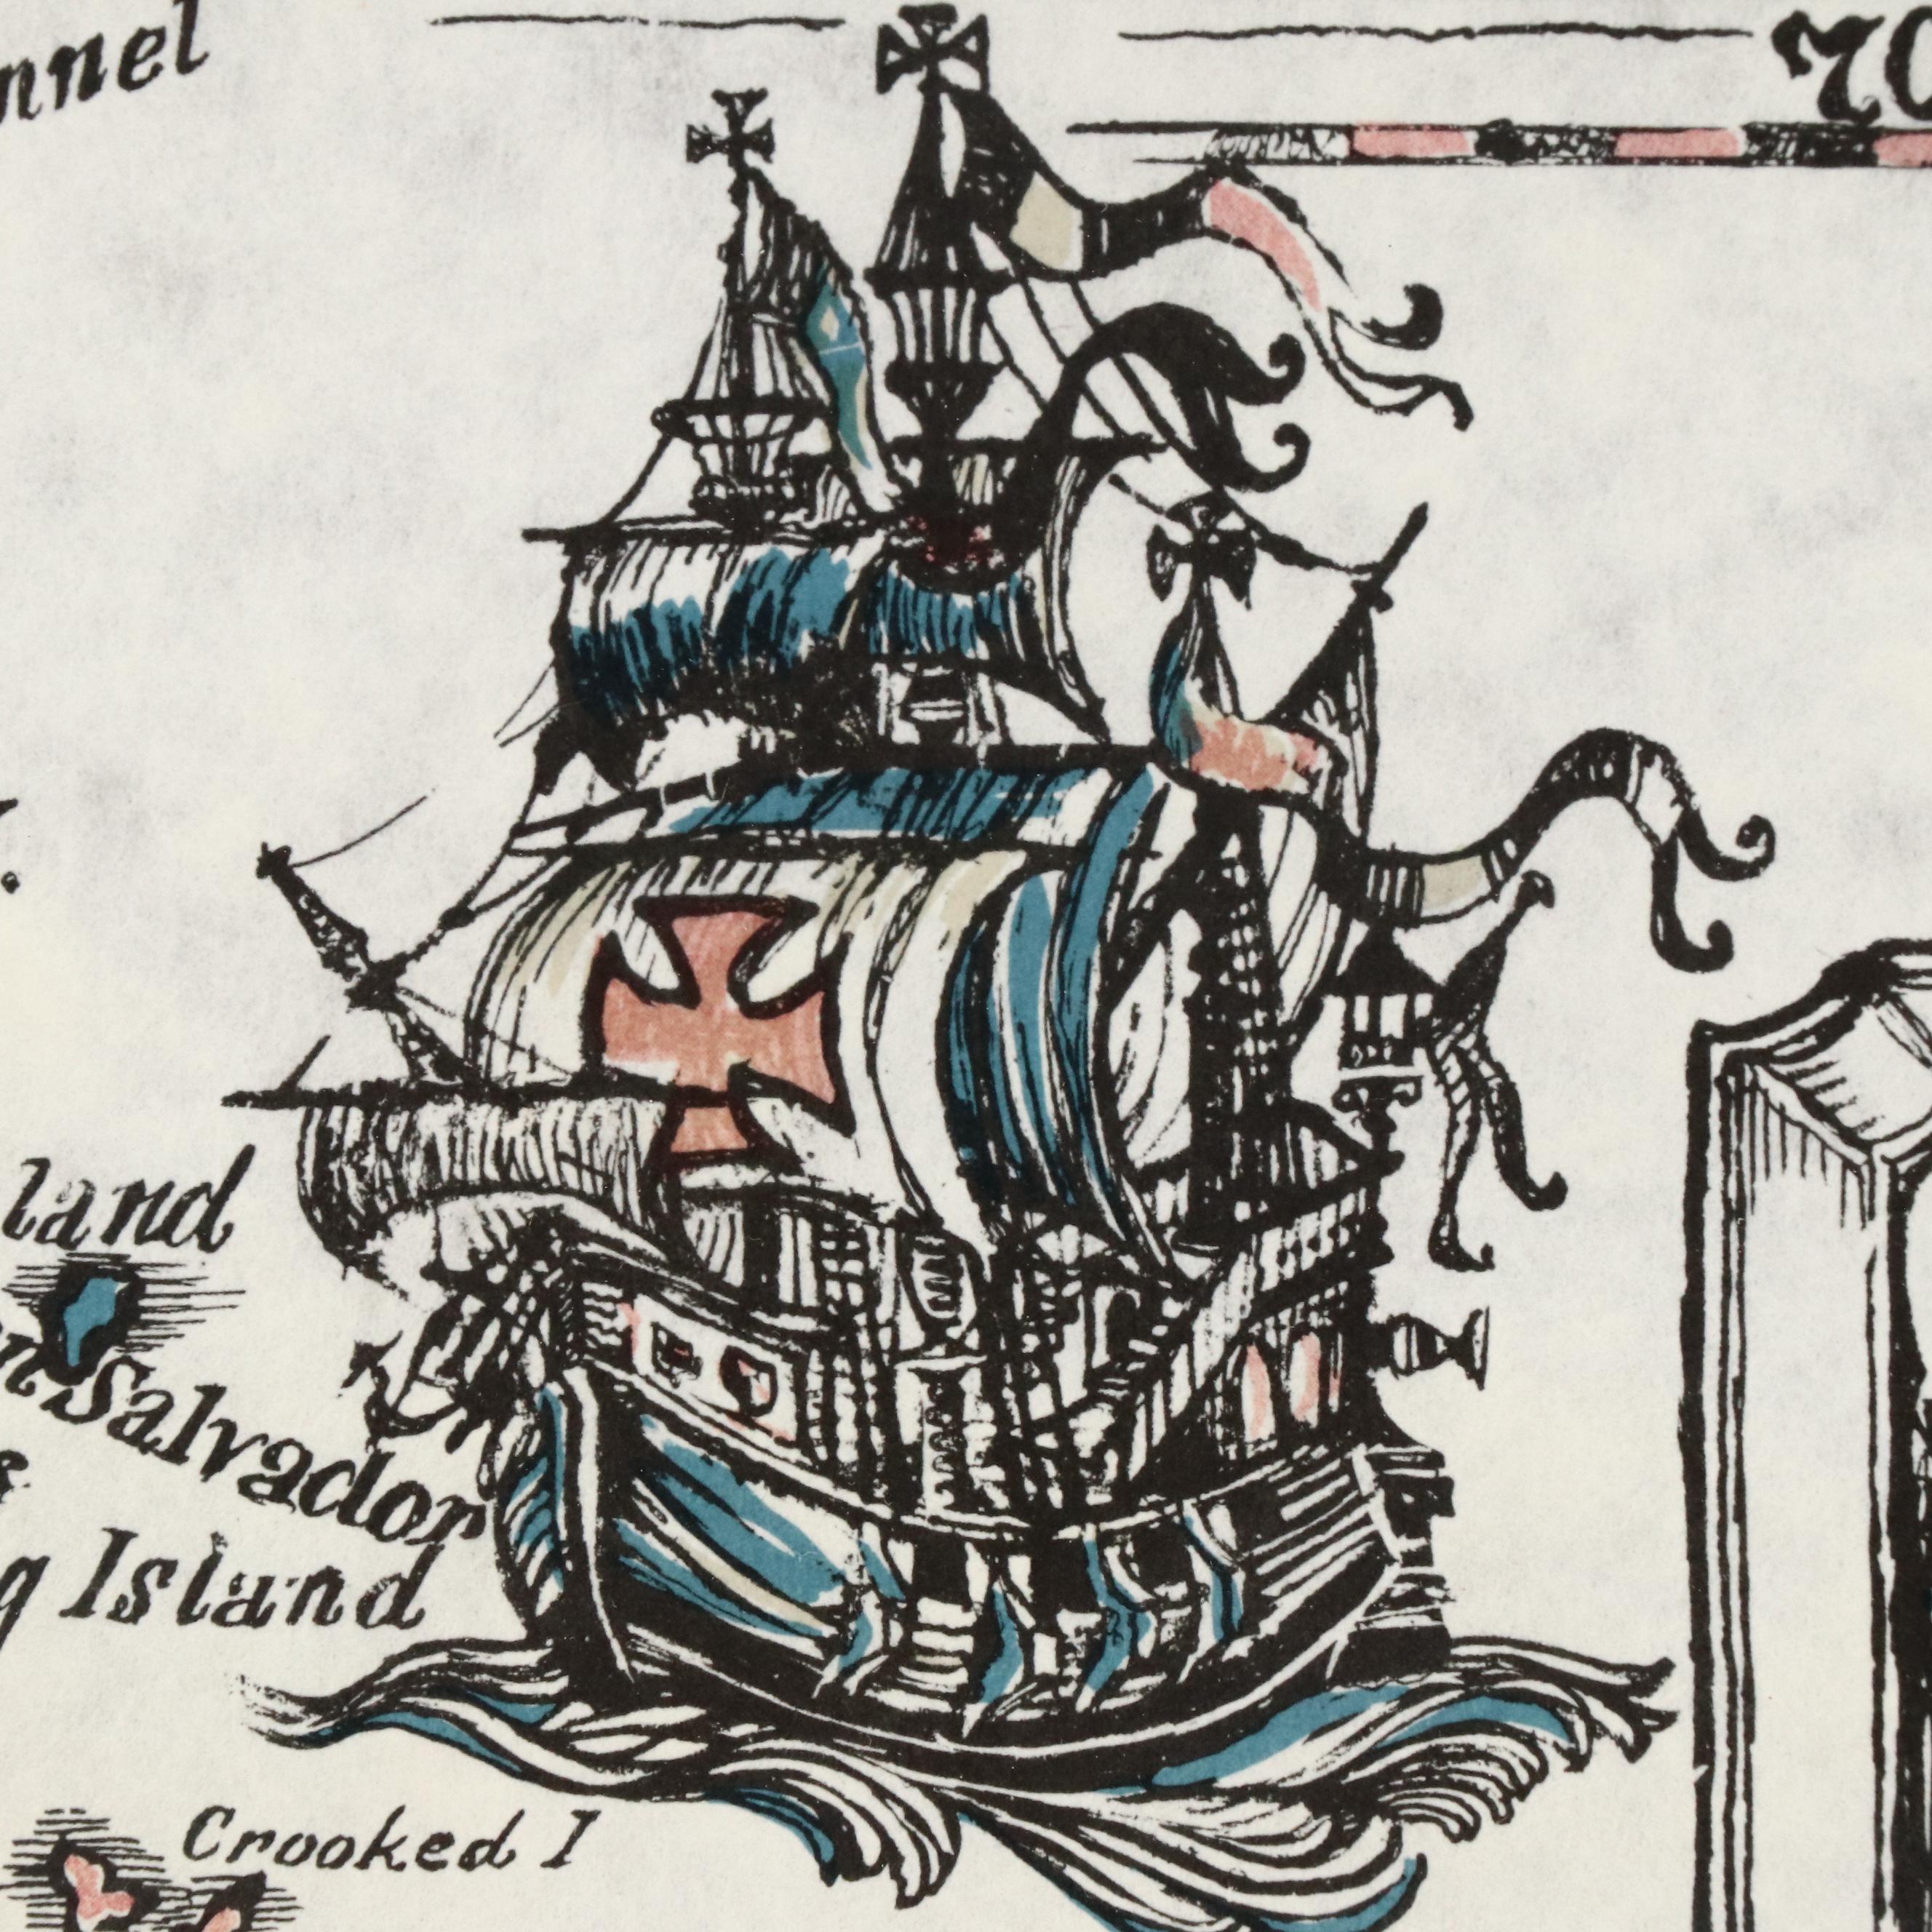 nnel
70
land
Salvador
g Island
Crooked I